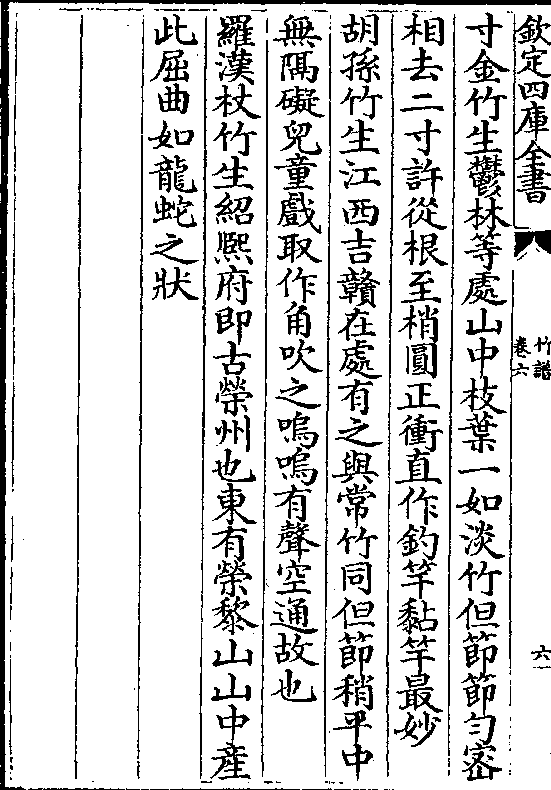 欽定四庫全書
竹譜
卷六
六
寸金竹生鬱林等處山中枝葉一如淡竹但節節勻宻
相去二寸許從根至梢圓正衝直作釣竿黏竿最妙
胡孫竹生江西吉贛在處有之與常竹同但節稍平中
無隔礙兒童戲取作角吹之嗚嗚有聲空通故也
羅漢杖竹生紹熈府即古榮州也東有榮黎山山中産
此屈曲如龍蛇之狀